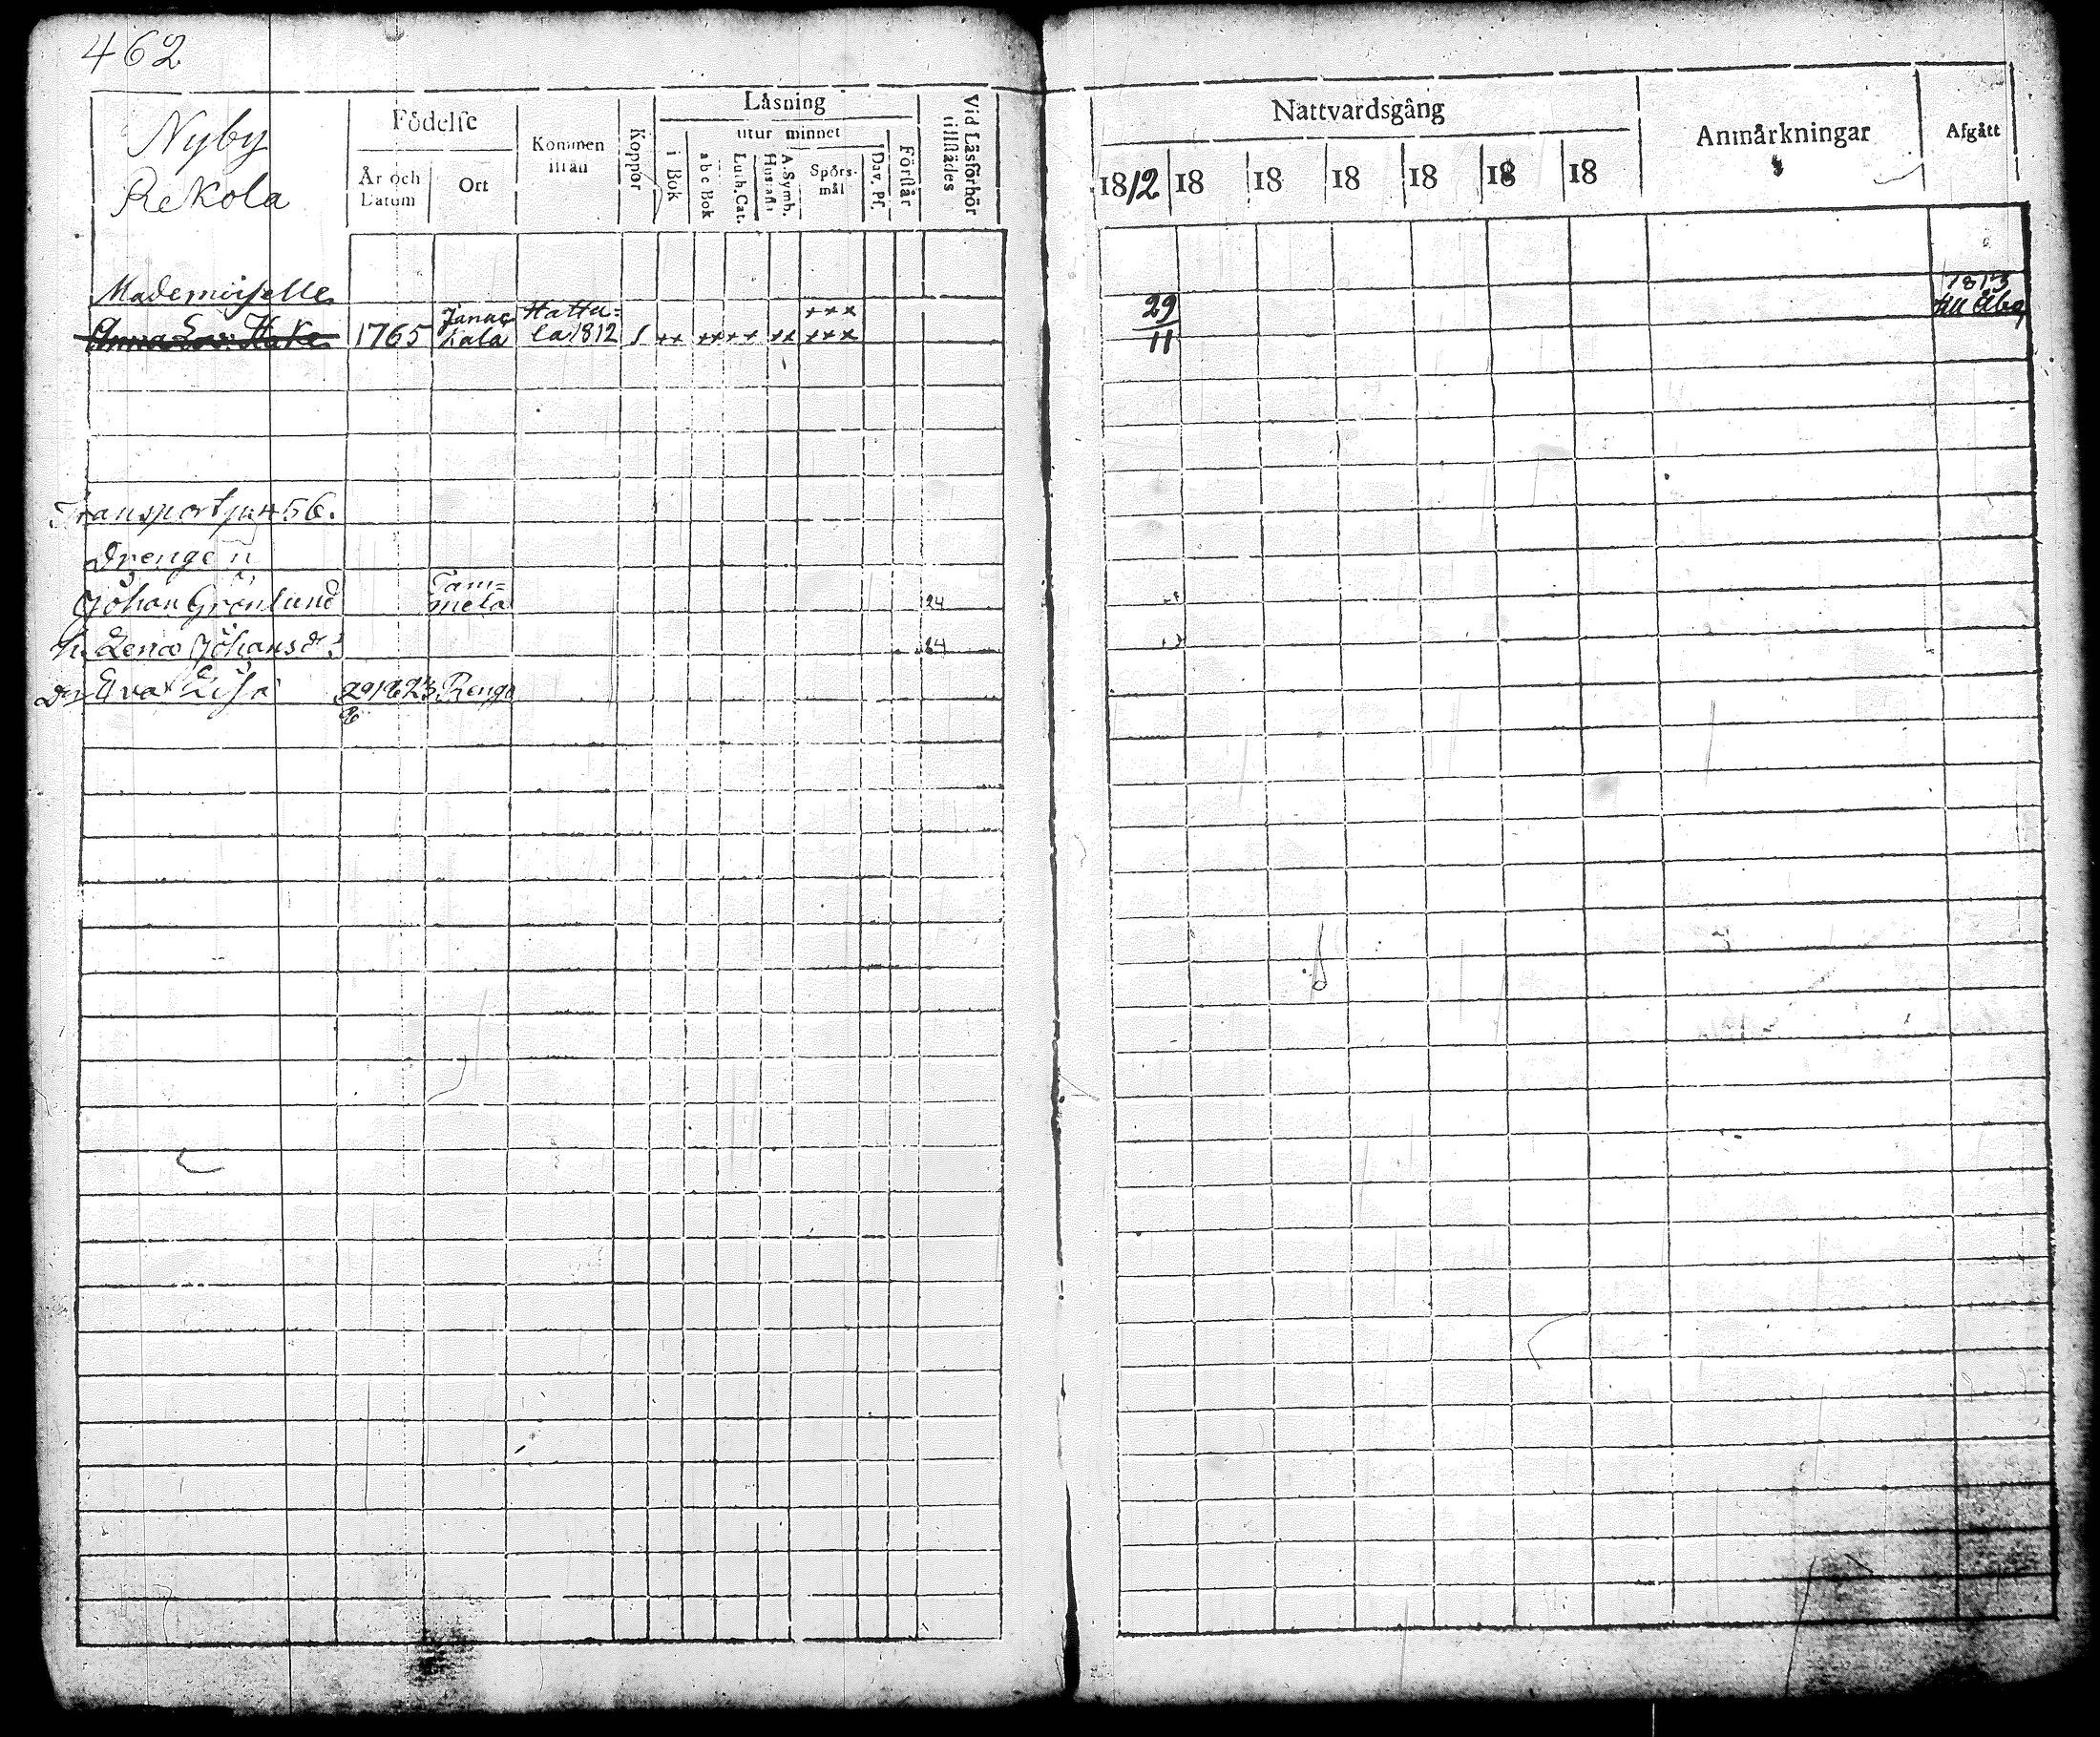 462
Nyby
Rekola
Födelse
År och Datum
Ort
Kommen ifrån
Koppor
Läsning
utur minnet
i Bok
abc Bok
Luth. Cat.
Hustafl.
A. Symb.
Spörsmål
Dav. Ps.
Förstår
Vid Läsförhör tillstädes
Nattvardsgång
1812 18 18 18 18 18 18
Anmärkningar
Afgått
Mademoiselle
Anna Lov: Hake 1765 Janackala Hattula 1812 / ++ ++ ++ ++ +++ +++ 29/11 1813 till Åbo
Transport p. 456.
Drengen
Johan Grönlund Tammela 24
h. Lena Johansdr: 24
Dr Eva Lisa 29/6 1823 Rengo